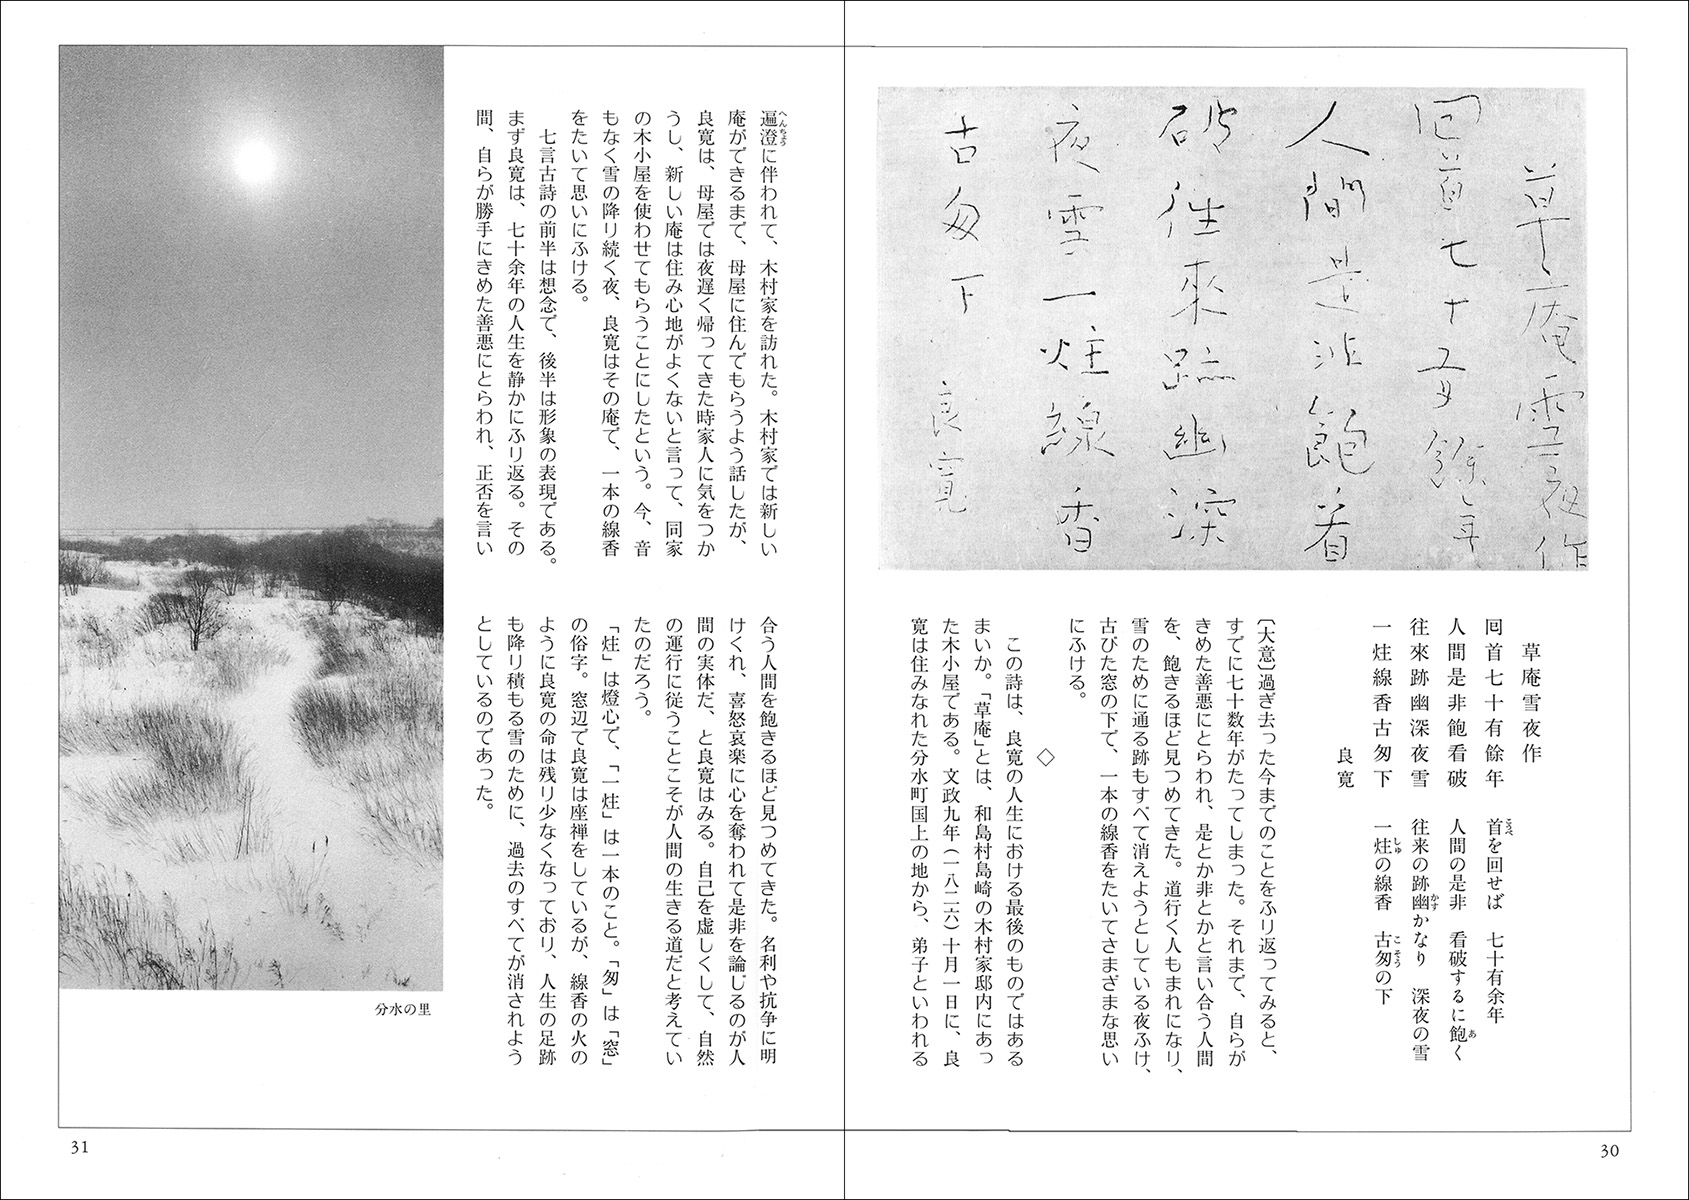 草庵雪夜作
回首七十有餘年
人間是非飽看
破往來跡幽深
夜雪一炷線香
古匆下　良寛
草庵雪夜作
回首七十有餘年
人間是非飽看破
往來跡幽深夜雪
一炷線香古匆下
良寛
首を回せば　七十有余年
人間の是非　看破するに飽く
往来の跡幽かなり　深夜の雪
一炷の線香　古匆の下
〔大意〕過ぎ去った今までのことをふり返ってみると、
すでに七十数年がたってしまった。それまで、自らが
きめた善悪にとらわれ、是とか非とかと言い合う人間
を、飽きるほど見つめてきた。道行く人もまれになり、
雪のために通る跡もすべて消えようとしている夜ふけ、
古びた窓の下で、一本の線香をたいてさまざまな思い
にふける。
◇
この詩は、良寛の人生における最後のものではある
まいか。「草庵」とは、和島村島崎の木村家邸内にあっ
た木小屋である。文政九年（一八二六）十月一日に、良
寛は住みなれた分水町国上の地から、弟子といわれる
30
遍澄に伴われて、木村家を訪れた。木村家では新しい
庵ができるまで、母屋に住んでもらうよう話したが、
良寛は、母屋では夜遅く帰ってきた時家人に気をつか
うし、新しい庵は住み心地がよくないと言って、同家
の木小屋を使わせてもらうことにしたという。今、音
もなく雪の降り続く夜、良寛はその庵で、一本の線香
をたいて思いにふける。
七言古詩の前半は想念で、後半は形象の表現である。
まず良寛は、七十余年の人生を静かにふり返る。その
間、自らが勝手にきめた善悪にとらわれ、正否を言い
合う人間を飽きるほど見つめてきた。名利や抗争に明
けくれ、喜怒哀楽に心を奪われて是非を論じるのが人
間の実体だ、と良寛はみる。自己を虚しくして、自然
の運行に従うことこそが人間の生きる道だと考えてい
たのだろう。
「炷」は燈心で、「一炷」は一本のこと。「匆」は「窓」
の俗字。窓辺で良寛は座禅をしているが、線香の火の
ように良寛の命は残り少なくなっており、人生の足跡
も降り積もる雪のために、過去のすべてが消されよう
としているのであった。
分水の里
31